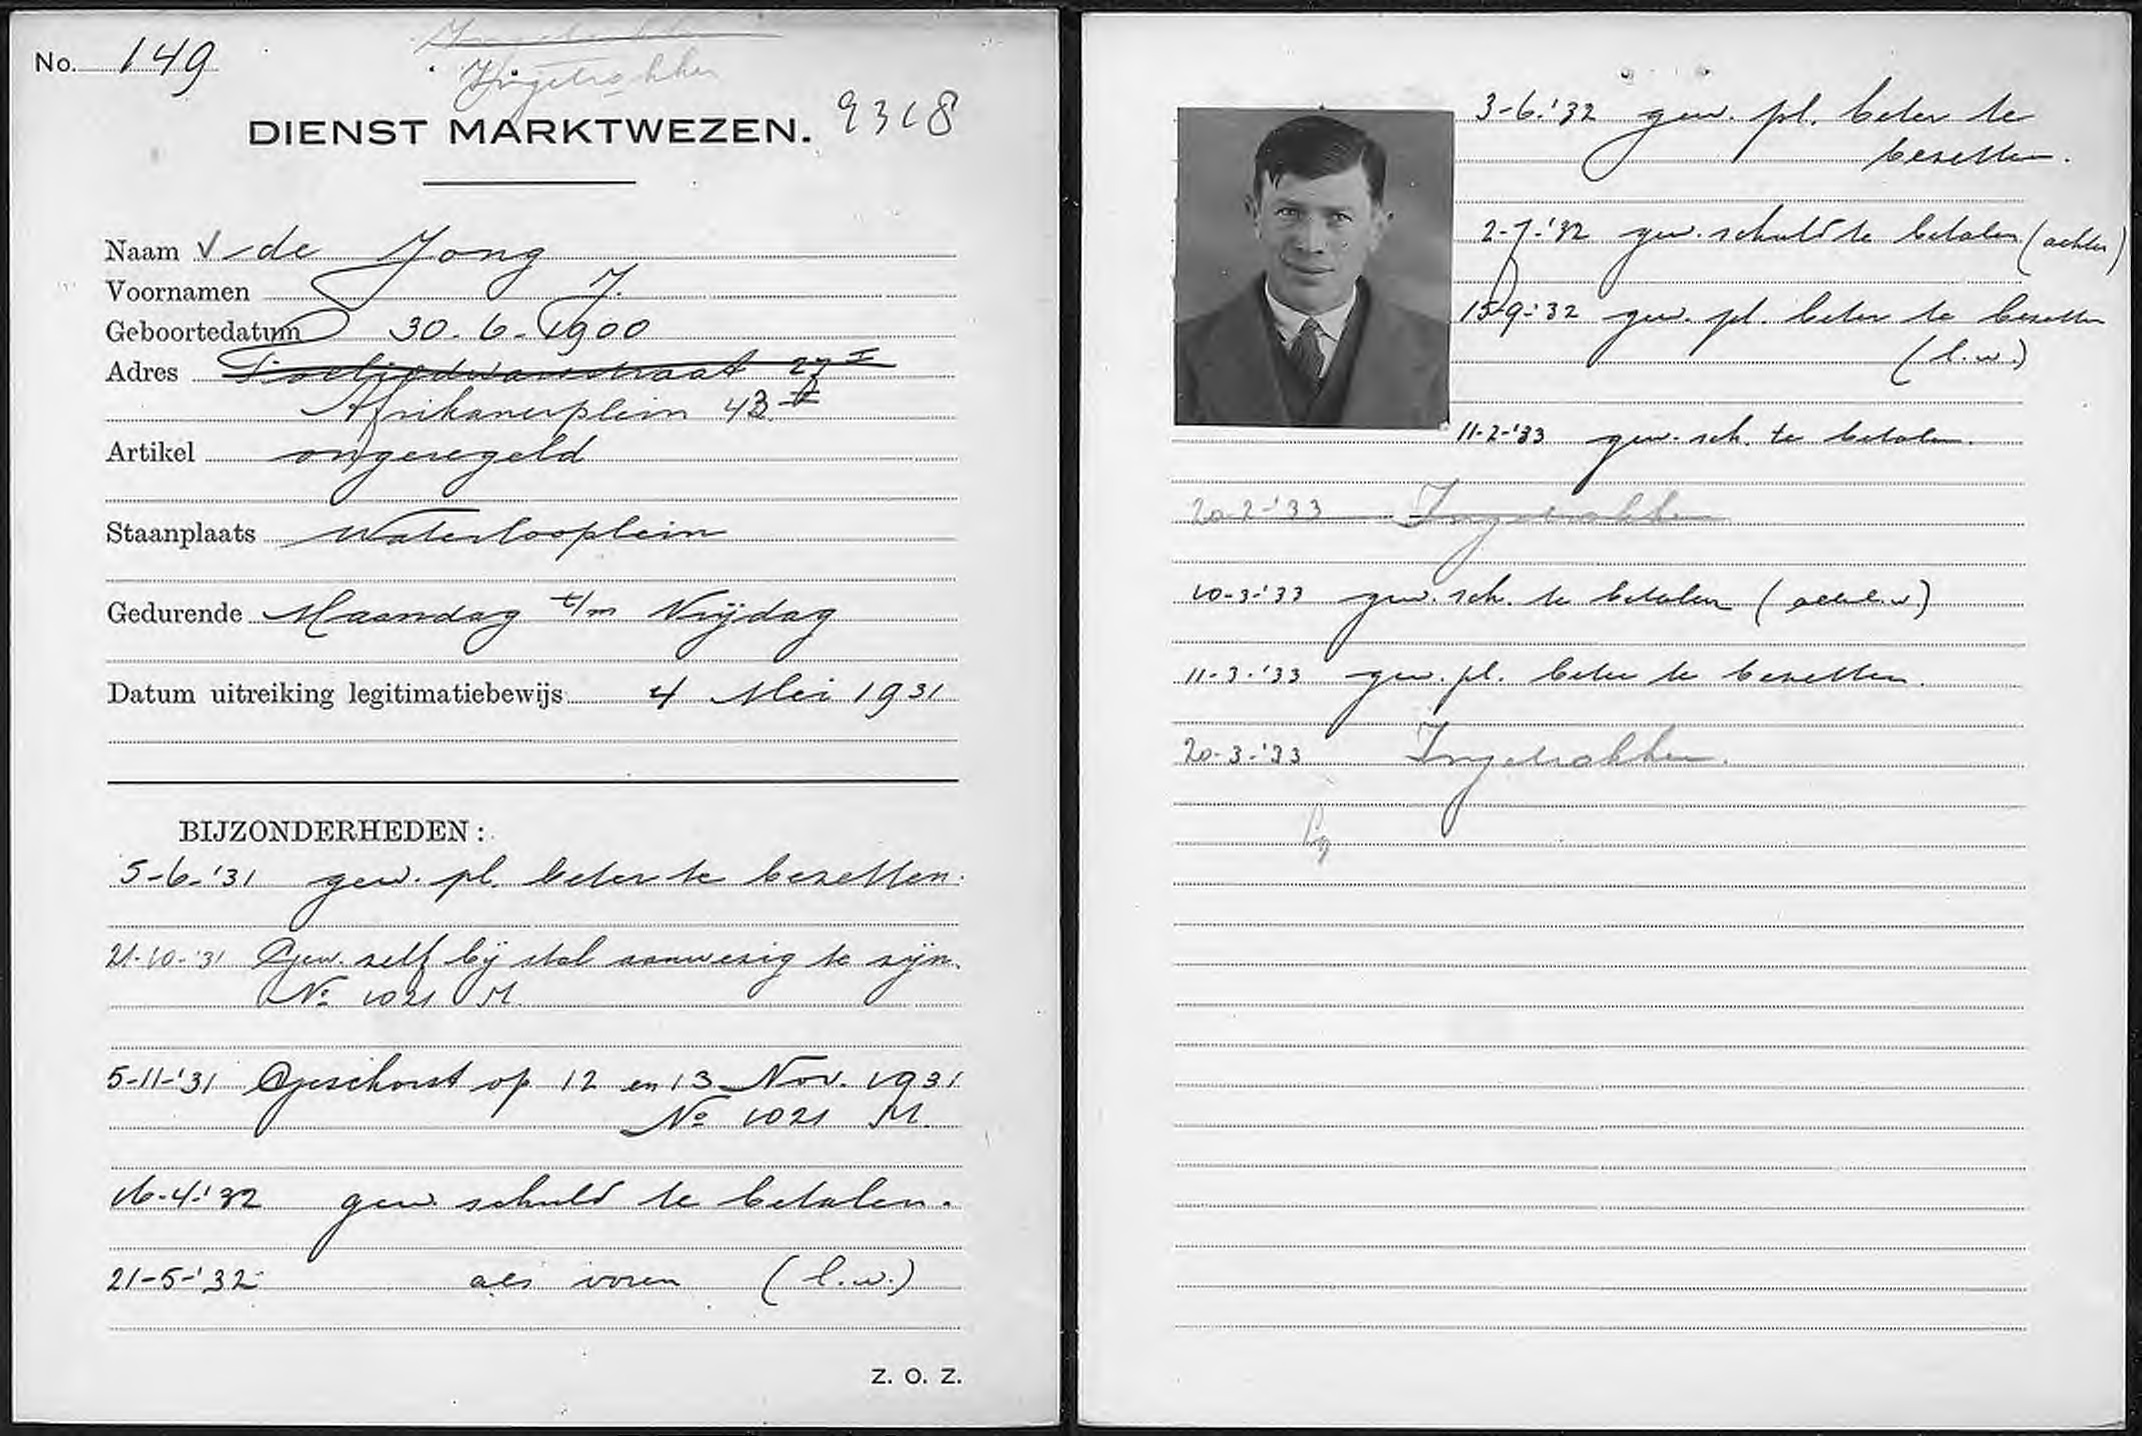 No. 149
Ingetrokken
Ingetrokken
DIENST MARKTWEZEN. 9318
Naam V de Jong
Voornamen J.
Geboortedatum 30-6-1900
Adres 27 I
Afrikanerplein 43 II
Artikel ongeregeld
Staanplaats Waterlooplein
Gedurende Maandag t/m Vrijdag
Datum uitreiking legitimatiebewijs 4 Mei 1931
BIJZONDERHEDEN:
5-6-'31 gew. pl. beter te bezetten.
21-10-'31 Gew. zelf bij stal aanwezig te zijn.
No 1021 M.
5-11-'31 Geschorst op 12 en 13 Nov. 1931
No 1021 M.
16-4-'32 gew. schuld te betalen.
21-5-'32 als voren (l.w.)
Z. O. Z.
3-6-'32 gew. pl. beter te
bezetten.
2-7-'32 gew. schuld te betalen
15-9-'32 gew. pl. beter te bezetten
(l.w.)
11-2-'33 gew. sch. te betalen.
20-2-'33 Ingetrokken
10-3-'33 gew. sch. te betalen
11-3-'33 gew. pl. beter te bezetten.
20-3-'33 Ingetrokken.